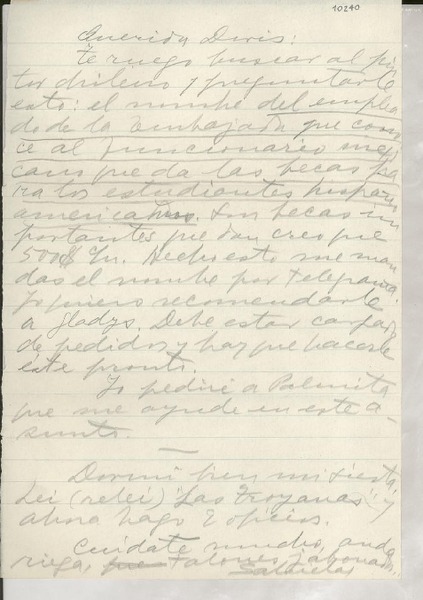 10240
Querida Doris:
Te ruego buscar al pin-
tor chileno y preguntarle
esto: el nombre del emplea
do de la Embajada que cono-
ce al funcionario meji
cano que da las becas pa
ra los estudiantes hispano
americanos. Son becas im
portantes que dan creo que
500$ m. Hecho esto me man
das el nombre por telegrama.
Yo quiero recomendarle
a Gladys. Debe estar carga
do de pedidos y hay que hacerle
éste pronto.
Yo pediré a Palmita
que me ayude en este a-
sunto.
Dormí bien mi siesta,
leí (releí) "Las Troyanas" y
ahora hago 2 oficios.
Cuídate mucho, anda
riega, talones